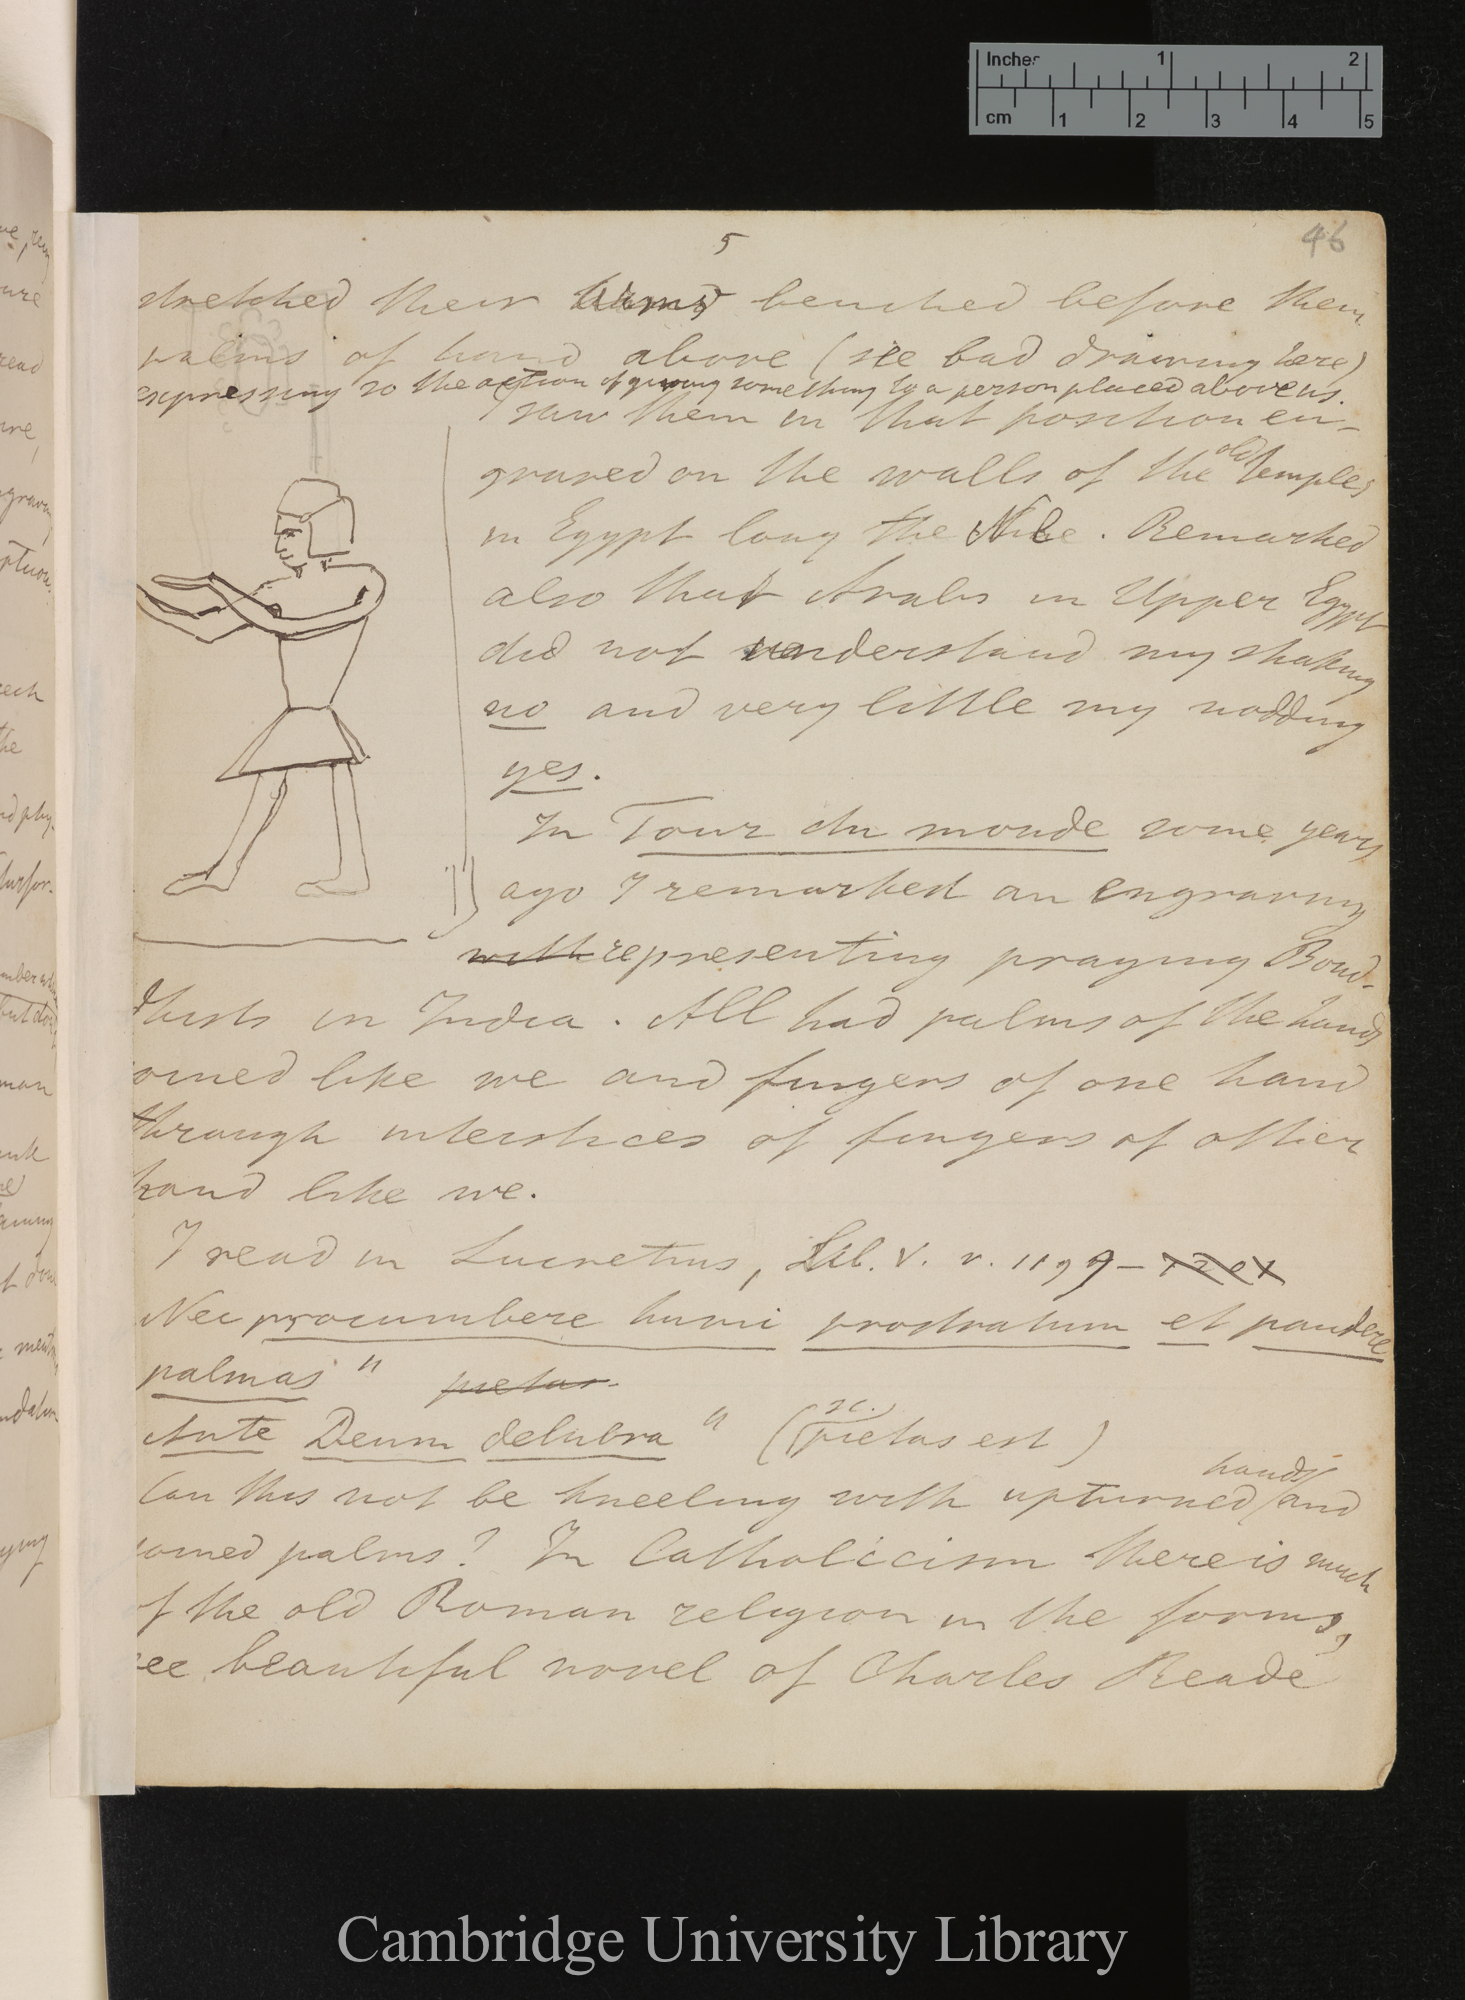 Inches 1 2
cm 1 2 3 4 5
46
5
stretched their arms benched before them
palms of hand above (see bad drawing here)
expressing so the action of giving something to a person placed above us.
I saw them in that position en-
graved on the walls of the old temples
in Egypt long the Nile. Remarked
also that Arabs in Upper Egypt
did not understand my shaking
no and very little my nodding
yes.
In Tour du monde some years
ago I remarked an engraving
with representing praying Boud-
dhists in India. All had palms of the hands
joined like we and fingers of one hand
through interstices of fingers of other
hand like we.
I read in Lucretius, Lib. V. v. 1199 –
Nec procumbere humi prostratum et pandere
palmas" pietas
Ante Deum delubra" (sc. pietas est)
Can this not be kneeling with upturned hands and
joined palms? In Catholicism there is much
of the old Roman religion in the forms,
see beautiful novel of Charles Reade
Cambridge University Library